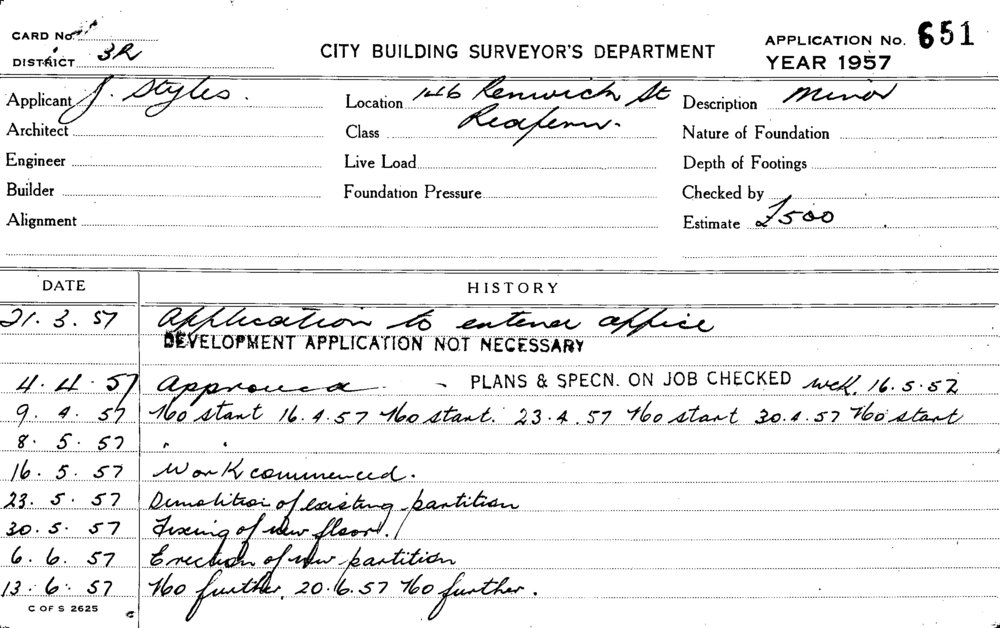 CARD No.
DISTRICT 3R
CITY BUILDING SURVEYOR'S DEPARTMENT
APPLICATION No. 651
YEAR 1957
Applicant J. Styles.
Location 146 Renwick St
Redfern.
Description Minor
Architect
Class
Nature of Foundation
Engineer
Live Load
Depth of Footings
Builder
Foundation Pressure
Checked by
Alignment
Estimate £500
DATE HISTORY
21. 3. 57 Application to extend office
DEVELOPMENT APPLICATION NOT NECESSARY
4. 4. 57 Approved - PLANS & SPECN. ON JOB CHECKED WCK. 16.5.57
9. 4. 57 No start 16.4.57 No start. 23.4.57 No start 30.4.57 No start
8. 5. 57 " "
16. 5. 57 Work commenced.
23. 5. 57 Demolition of existing partition
30. 5. 57 Fixing of new floor.
6. 6. 57 Erection of new partition
13. 6. 57 No further. 20.6.57 No further.
C OF S 2625